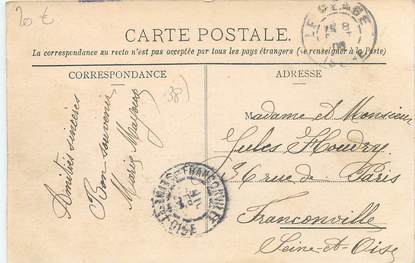 20 €
CARTE POSTALE
La correspondance au recto n'est pas acceptée par tous les pays étrangers (se renseigner à la Poste)
CORRESPONDANCE
ADRESSE
(38)
Amitiés sincères
Bon souvenir
Marie
Madame et Monsieur
Jules Houdry
36 rue de Paris
Franconville
Seine-et-Oise
LE PEAGE
FRANCONVILLE
OISE